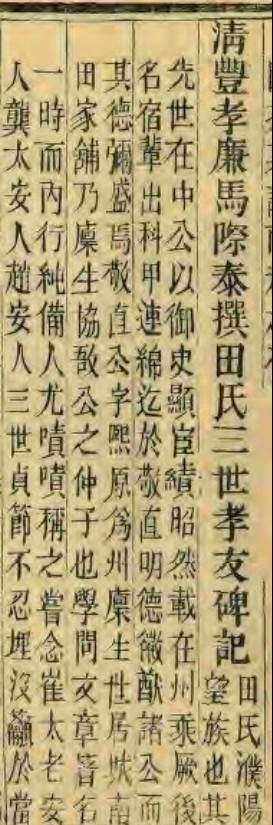 清豐孝廉馬際泰撰田氏三世孝友碑記
田氏濮陽
望族也其
先世在中公以御史顯宦績昭然載在州乘厥後
名宿輩出科甲連綿迄於敬直明德徽猷諸公而
其德彌盛焉敬直公字熙原為州廩生世居城南
田家舖乃廩生協恭公之仲子也學問文章著名
一時而內行純備人尤嘖嘖稱之嘗念崔太老安
人龔太安人趙安人三世貞節不忍埋沒籲於當